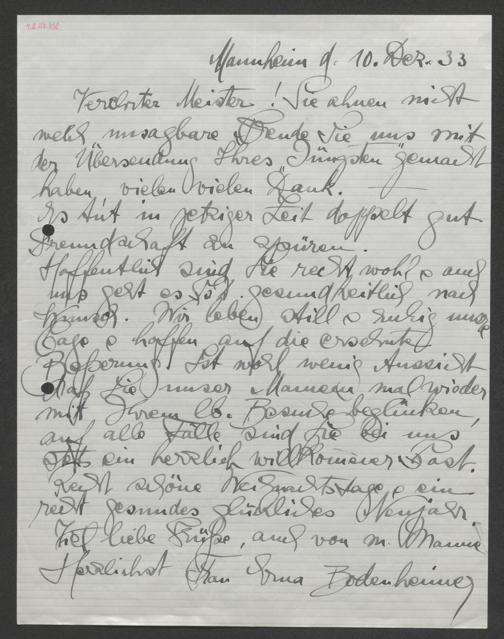 Mannheim d. 10. Dez. 33
Verehrter Meister! Sie ahnen nicht
welch unsagbare Freude Sie uns mit
der Übersendung Ihres "Jüngsten" gemacht
haben, vielen vielen Dank. —
Es tut in jetziger Zeit doppelt gut
Freundschaft zu spüren.
Hoffentlich sind Sie recht wohl & auch
uns geht es gesundheitlich nach
Wunsch. Wir leben still & ruhig unsre
Tage & hoffen auf die ersehnte
Beßerung. Ist wohl wenig Aussicht
daß Sie unser Mannem mal wieder
mit Ihrem lb. Besuche beglücken,
auf alle Fälle sind Sie bei uns
stets ein herzlich willkommener Gast.
Recht schöne Weihnachtstage & ein
recht gesundes glückliches Neujahr.
Viel liebe Grüße, auch von m. Manne
Herzlichst Frau Erna Bodenheimer